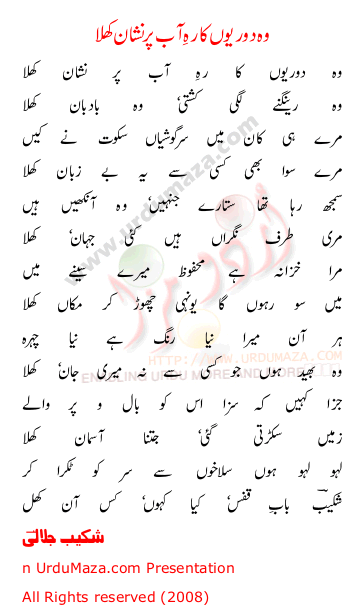 وہ دوریوں کا رہِ آب پر نشان کھلا
وہ دوریوں کا رہِ آب پر نشان کھلا
وہ رینگنے لگی کشتی، وہ بادبان کھلا
مرے ہی کان میں سرگوشیاں سکوت نے کیں
مرے سوا بھی کسی سے یہ بے زبان کھلا
سمجھ رہا تھا ستارے جنہیں، وہ آنکھیں ہیں
مری طرف نگراں ہیں کئی جہان، کھلا
مرا خزانہ ہے محفوظ میرے سینے میں
میں سو رہوں گا یونہی چھوڑ کر مکاں کھلا
ہر آن میرا نیا رنگ ہے نیا چہرہ
وہ بھید ہوں جو کسی سے نہ میری جان، کھلا
جزا کہیں کہ سزا اس کو بال و پر والے
زمیں سکڑتی گئی، جتنا آسمان کھلا
لہو لہو ہوں سلاخوں سے سر کو ٹکرا کر
شکیبؔ بابِ قفس، کیا کہوں، کس آن کھل
شکیب جلالیؔ
n UrduMaza.com Presentation
All Rights reserved (2008)
www.urdumaza.com
اردو مزا
HTTP://WWW.URDUMAZA.COM